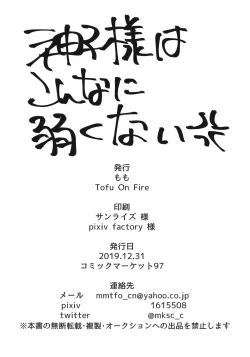 神様は
こんなに
弱くない
発行
もも
Tofu On Fire
印刷
サンライズ 様
pixiv factory 様
発行日
2019.12.31
コミックマーケット97
連絡先
メール mmtfo_cn@yahoo.co.jp
pixiv 1615508
twitter @mksc_c
※本書の無断転載・複製・オークションへの出品を禁止します